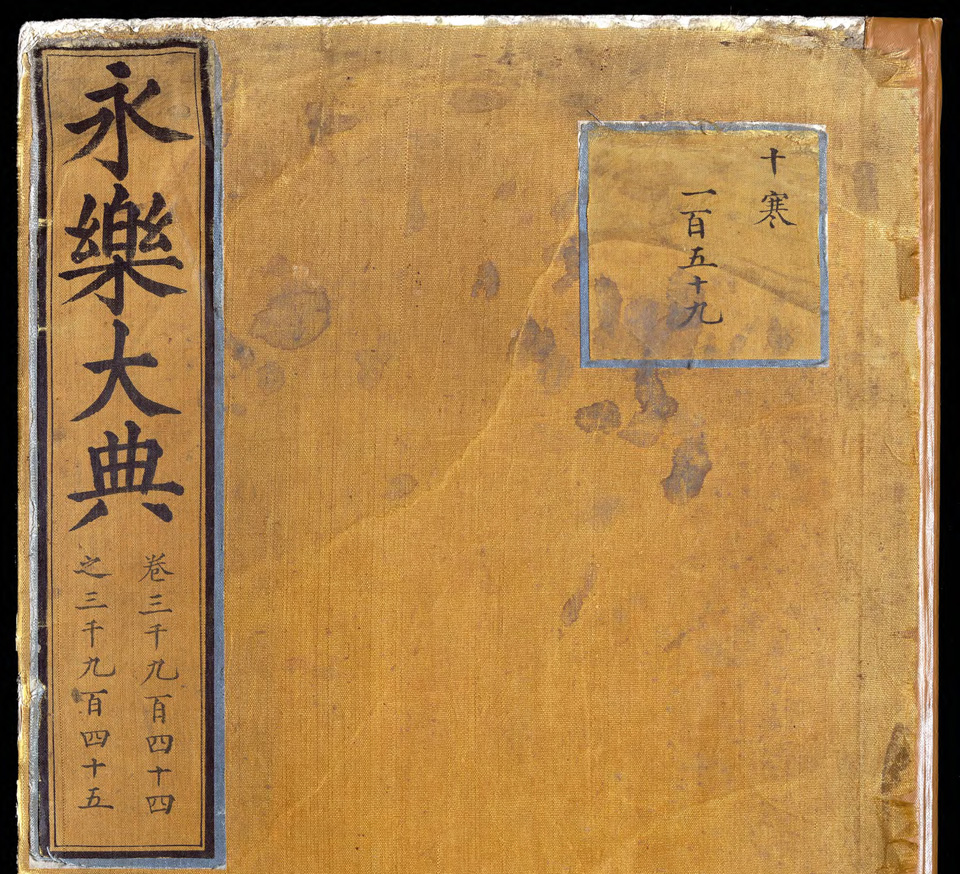 永樂大典
卷三千九百四十四
之三千九百四十五
十寒
一百五十九